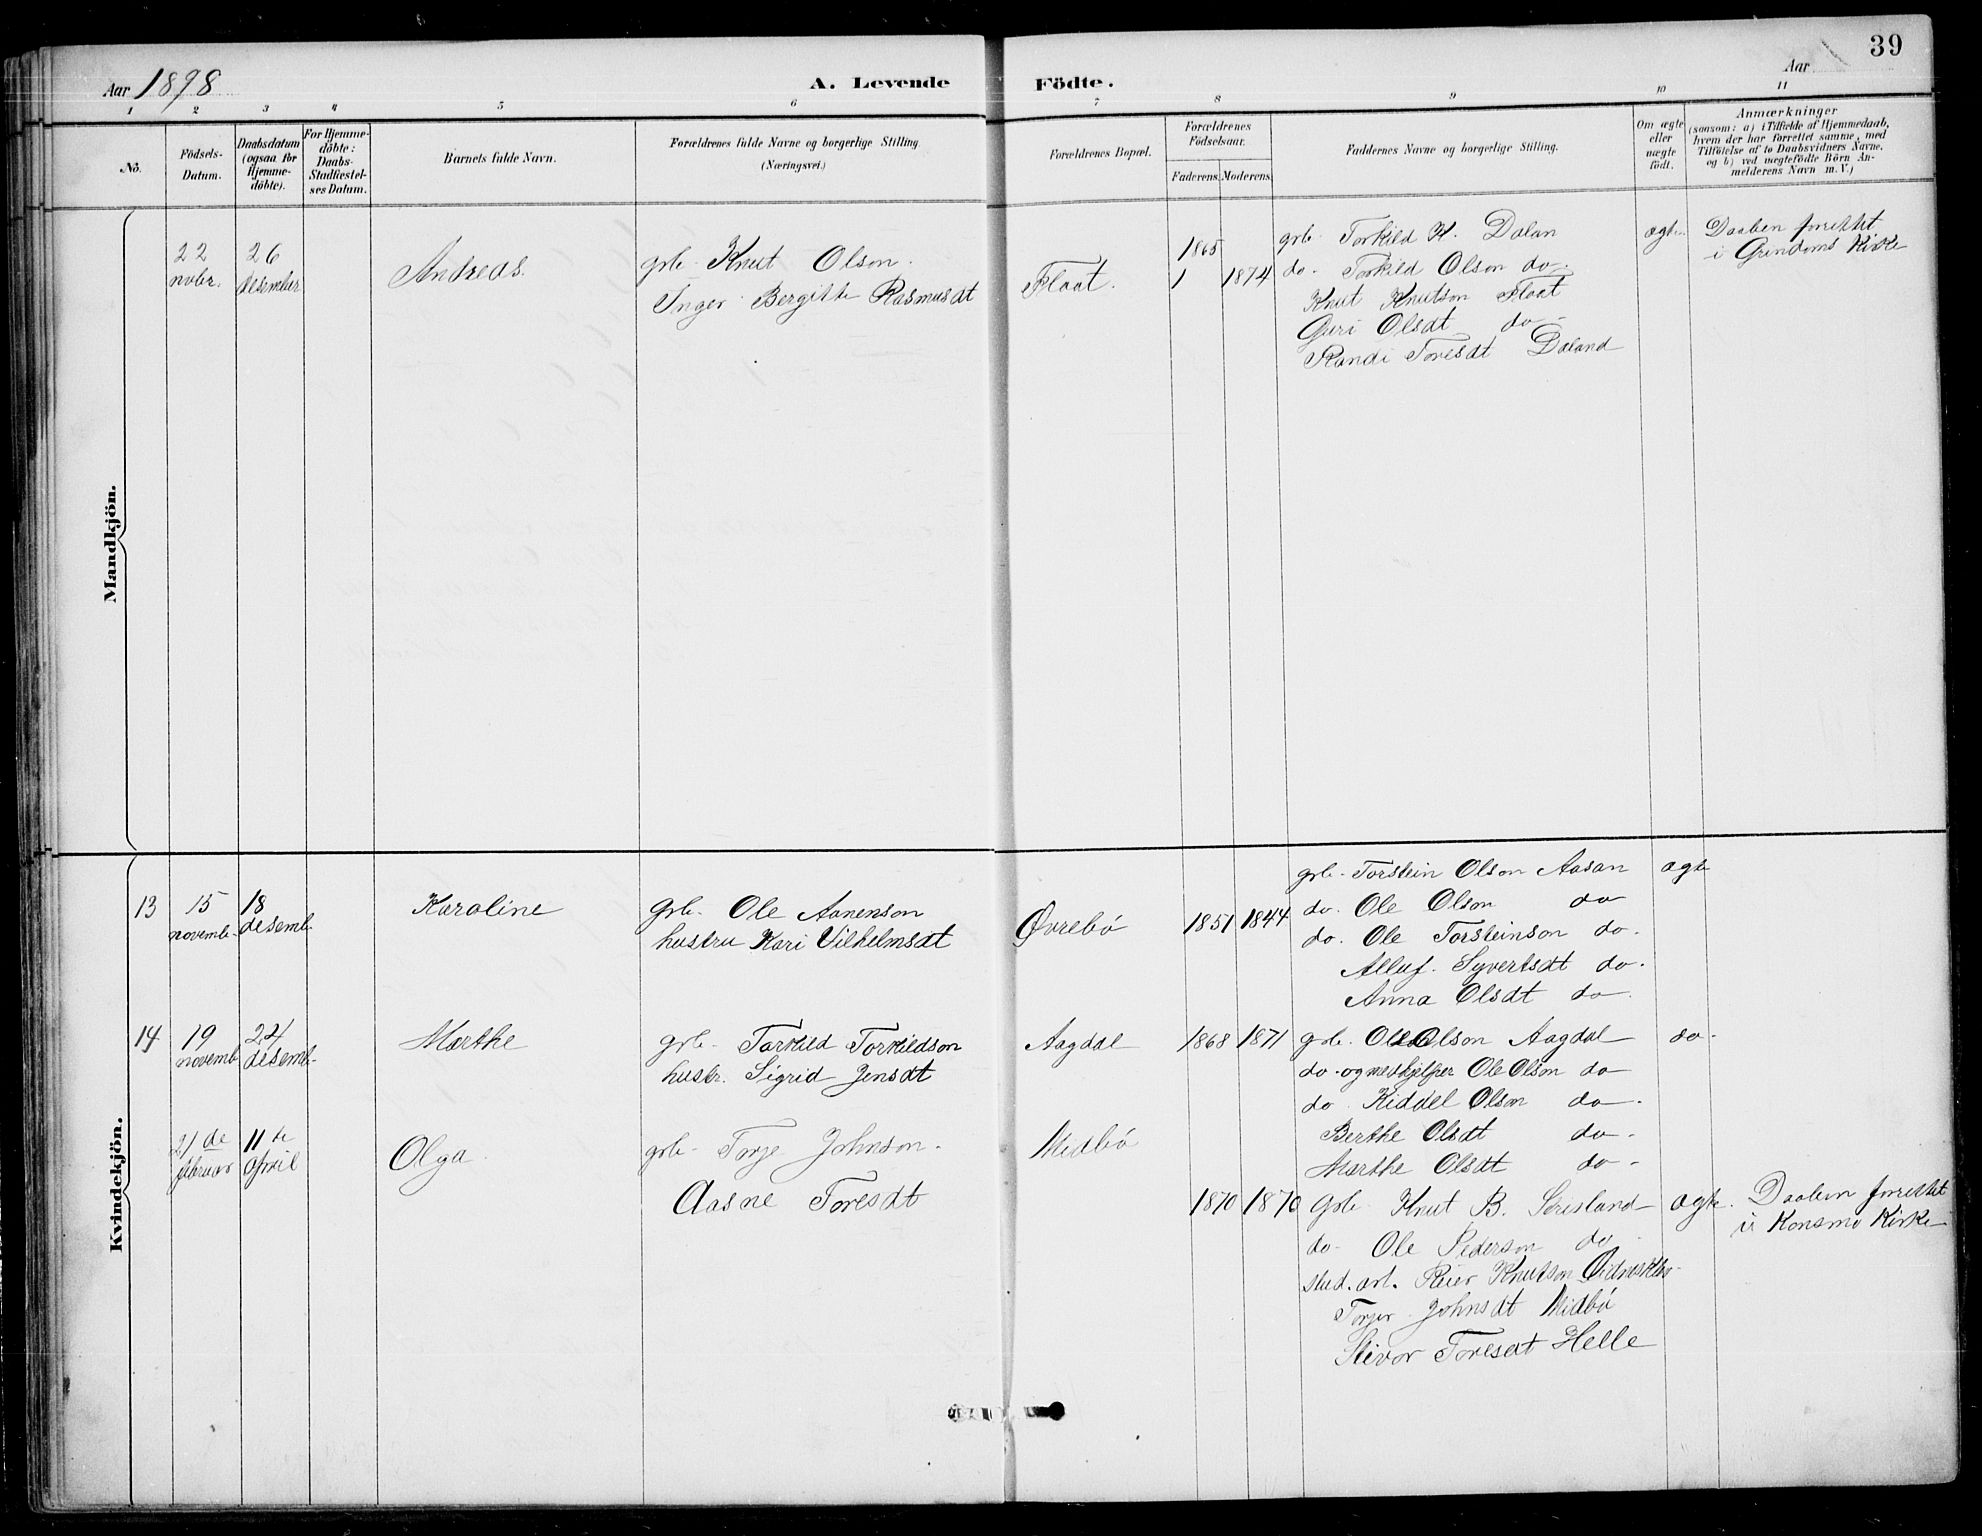 39
Aar 1898
A. Levende Födte.
Aar
1 2 3 4 5 6 7 8 9 10 11
No.
Födsels-
Datum.
Daabsdatum
(ogsaa for
Hjemme-
döbte).
For Hjemme-
döbte:
Daabs-
Stadfæstel-
ses Datum.
Barnets fulde Navn.
Forældrenes fulde Navne og borgerlige Stilling
(Næringsvei.)
Forældrenes Bopæl.
Forældrenes
Födselsaar.
Faderens. Moderens.
Faddernes Navne og borgerlige Stilling.
Om ægte
eller
uægte
födt.
Anmærkninger
(saasom: a) i Tilfælde af Hjemmedaab,
hvem der har forrettet samme, med
Tilföielse af to Daabsvidners Navne,
og b) ved uægtefödte Börn An-
melderens Navn m. V.)
Mandkjön.
22
novbr.
26
desember
Andreas.
grb. Knut Olson.
Inger Bergitte Rasmusdt
Flaat.
1865
1 1874
grb. Torkild K. Dalan
do. Torkild Olson do.
Knut Knutson Flaat
Guri Olsdt do-
Randi Toresdt Daland
ægte.
Daaben forrettet
i Grindems Kirke
Kvindekjön.
13
15
novemb.
18
desemb.
Karoline
grb. Ole Aanenson
hustru Kari Vilhelmsdt
Øvrebö
1851 1844
grb. Torstein Olson Aasan
do. Ole Olson do
do. Ole Torsteinson do.
Alluf. Syvertsdt do.
Anna Olsdt do.
ægte
14
19
novemb
24
desemb.
Marthe
grb. Tarkild Torkildson
hustr. Sigrid Jensdt
Aagdal
1868 1871
grb. Ole Olson Aagdal
do. og medhjelper Ole Olson do
do. Kiddel Olson do.
Berthe Olsdt do.
Marthe Olsdt do-
do.
21 de
februar
11 te
April
Olga
grb. Torje Johnson.
Aasne Toresdt
Midbö
1870 1870
Grb. Knut B. Serisland
do. Ole Pederson do
stud. art. Reier Knutson
Torjer Johnsdt Midbö
Sievor Toresdt Helle
ægte.
Daaben forrettet
i Konsmo Kirke